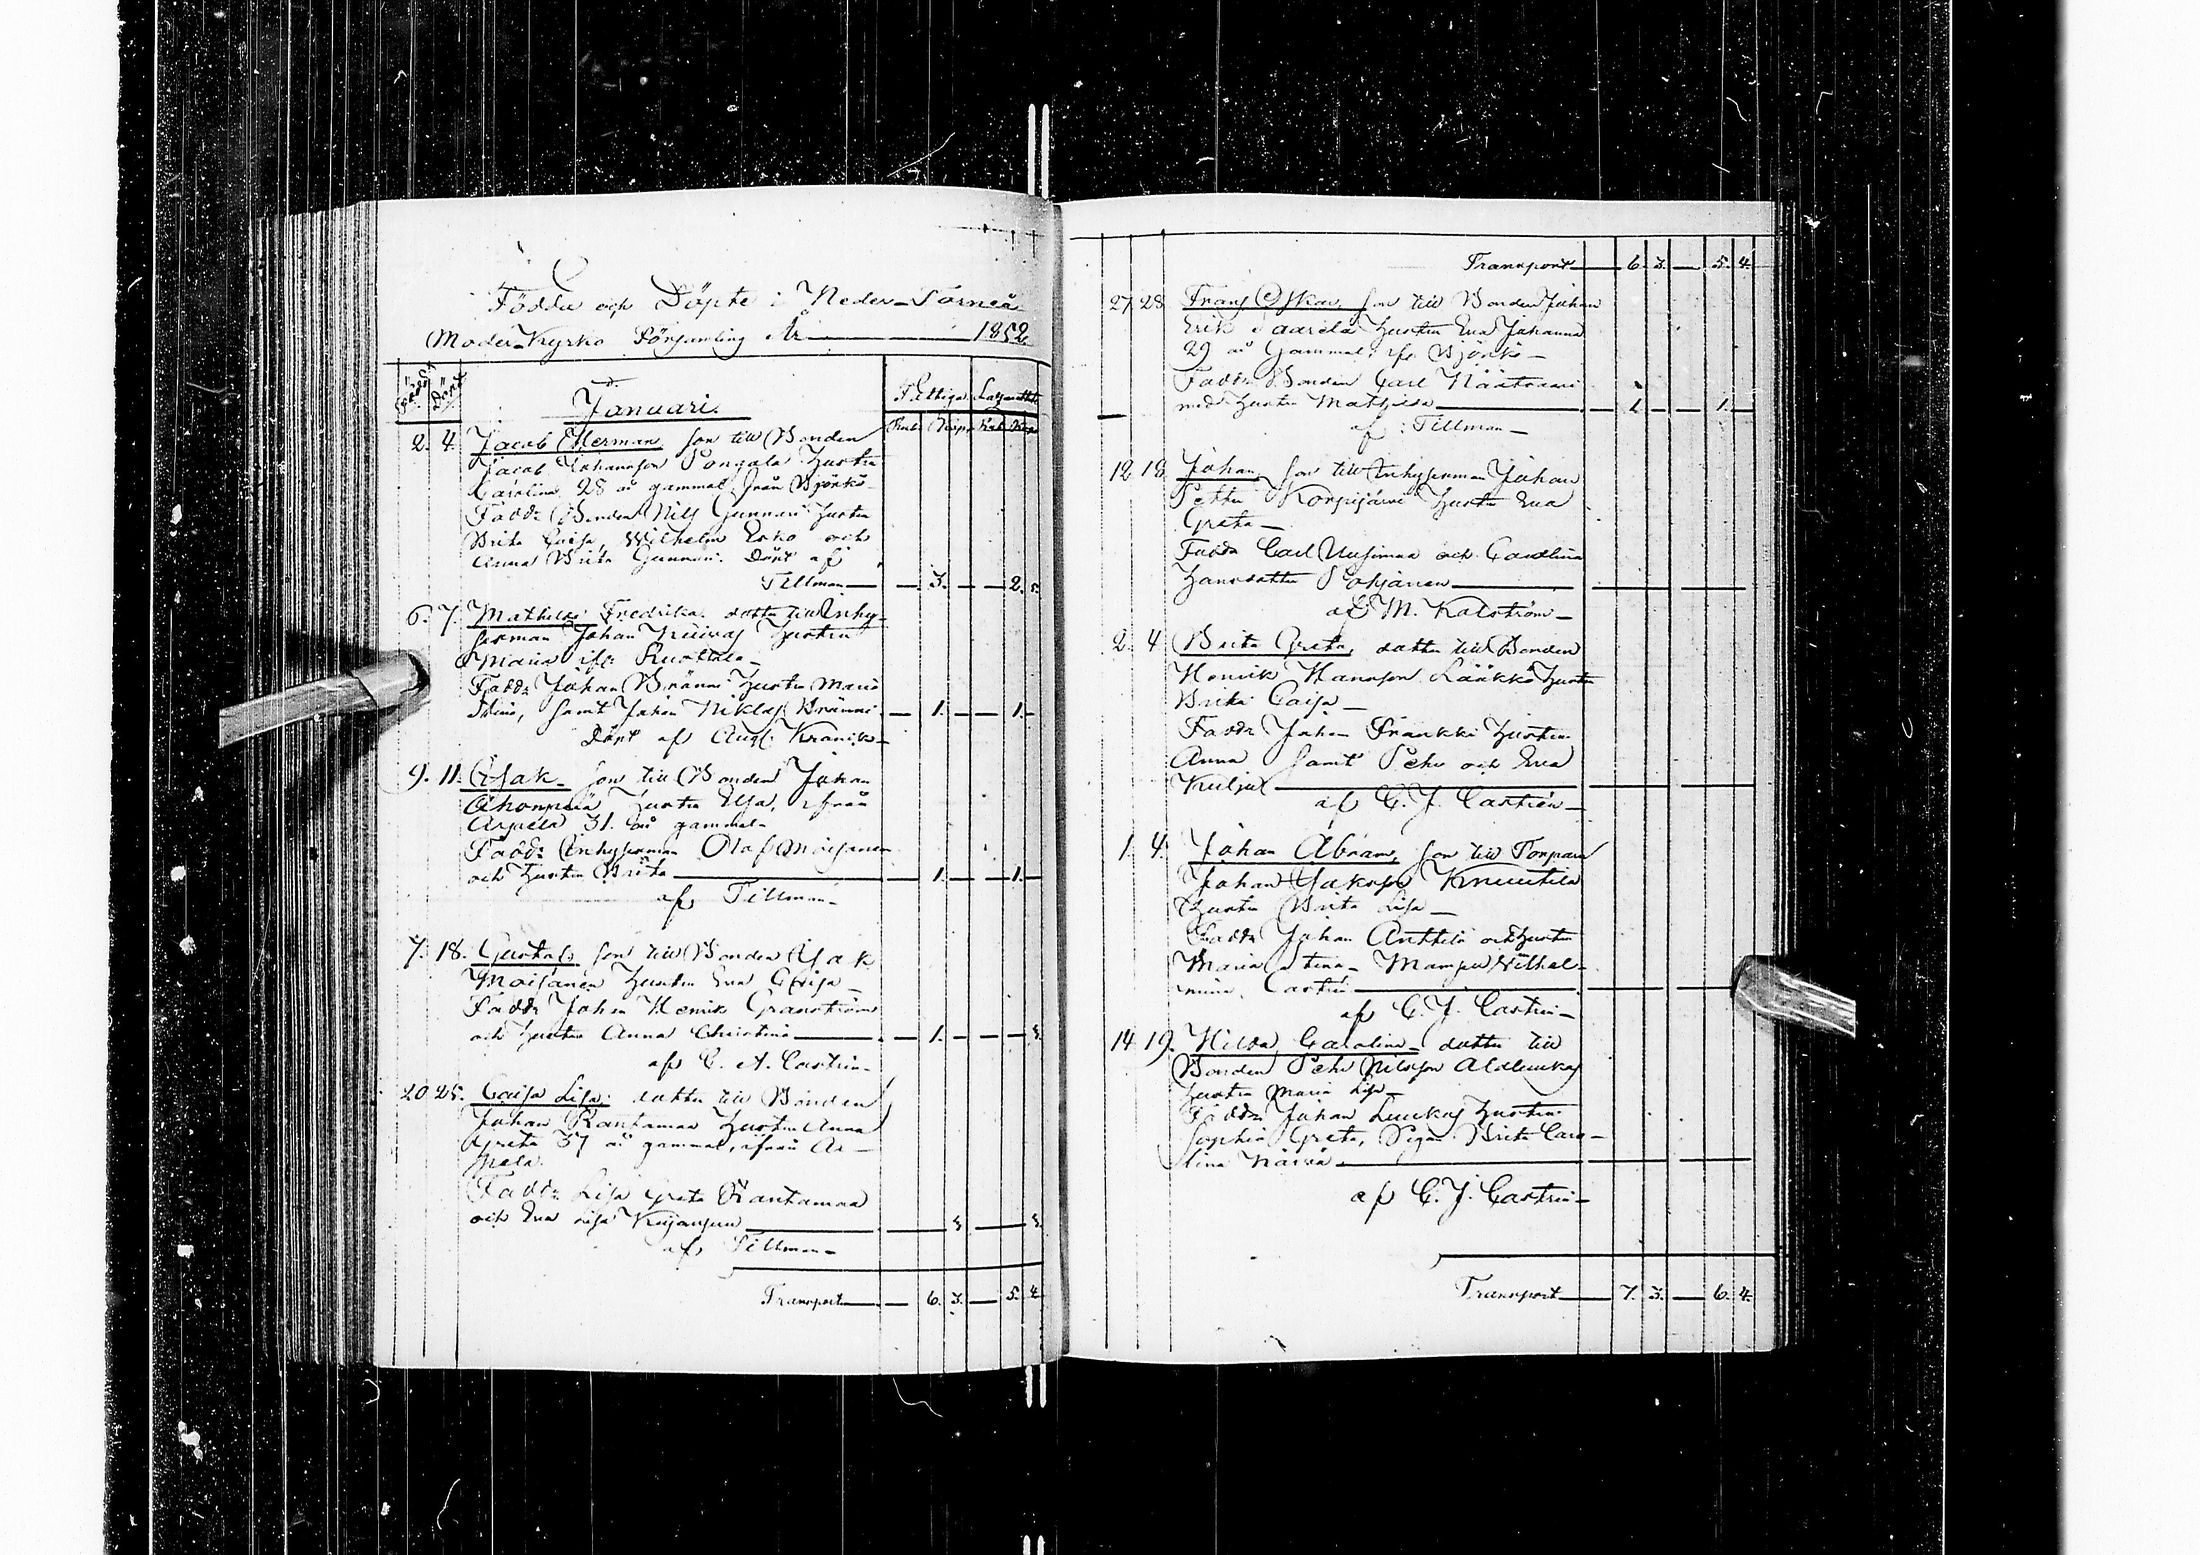 Födde och Döpte i Neder-Torneå
Moder-Kyrko Församling År 1852
Född Döpt
Januari
Fattiga Lazarettet
Rub. Kop. Rub. Kop.
2. 4. Jacob Herman, son till Bonden
Jacob Johansson Hustru
Carolina 28 år gammal, från Björkö
Fadd: Bonden Nils Gunnari Hustru
Brita Caisa, Wilhelm Erko och
Anna Brita Gunnari. Döpt af
Tillman 3. 2.
6. 7. Mathilda Fredrika dotter till Inhy-
sesman Johan Hustru
Maria ifr:
Fadd: Johan Brännö Hustru Maria
Stina, samt Johan Niklas Brännö 1. 1.
Döpt af Aug:
9. 11. Isak son till Bonden Johan
Hustru Elsa, ifrån
Arpela 31 år gammal
Fadd: Inhysesman Olof Moisanen
och Hustru Brita 1. 1.
af Tillman
7. 18. Gustaf son till Bonden Isak
Moisanen Hustru Eva Caisa
Fadd: Johan Henrik Granström
och Hustru Anna Christina 1.
af C. A. Castrén
20 25. Caisa Lisa dotter till Bonden
Johan Rantamaa Hustru Anna
Greta 37 år gammal, ifrån Ar-
pela.
Fadd: Lisa Greta Rantamaa
och Eva Lisa
af Tillman
Transport 6. 3. 5. 4.
Transport 6. 3. 5. 4.
27 28 Frans Oskar, son till Bonden Johan
Erik Saarela Hustru Eva Johanna
29 år Gammal, ifr Björkö
Fadd: Bonden Carl
med Hustru Mathilda 1. 1.
af Tillman
12 18 Johan, son till Inhysesman Johan
Petter Korpijärvi Hustru Eva
Greta
Fadd: Carl Uusimaa och Carolina
Hansdotter Pohjanen
af M. Kalström
2. 4 Brita Greta, dotter till Bonden
Henrik Hansson Lääkkö Hustru
Brita Caisa
Fadd: Johan Hustru
Anna samt Pehr och Eva
af C. J. Castrén
1. 4. Johan Abram, son till Torparen
Johan Jakobss. Knuutila
Hustru Brita Lisa
Fadd: Johan Anttila och Hustru
Maria Stina Wilhel-
mina Castrén
af C. J. Castrén
14 19. Hilda Carolina dotter till
Bonden Pehr Nilsson Alaluukas
Hustru Maria Lisa
Fadd: Johan Luukas Hustru
Sophia Greta, Pigan Brita Caro-
lina
af C. J. Castrén
Transport 7. 3. 6. 4.